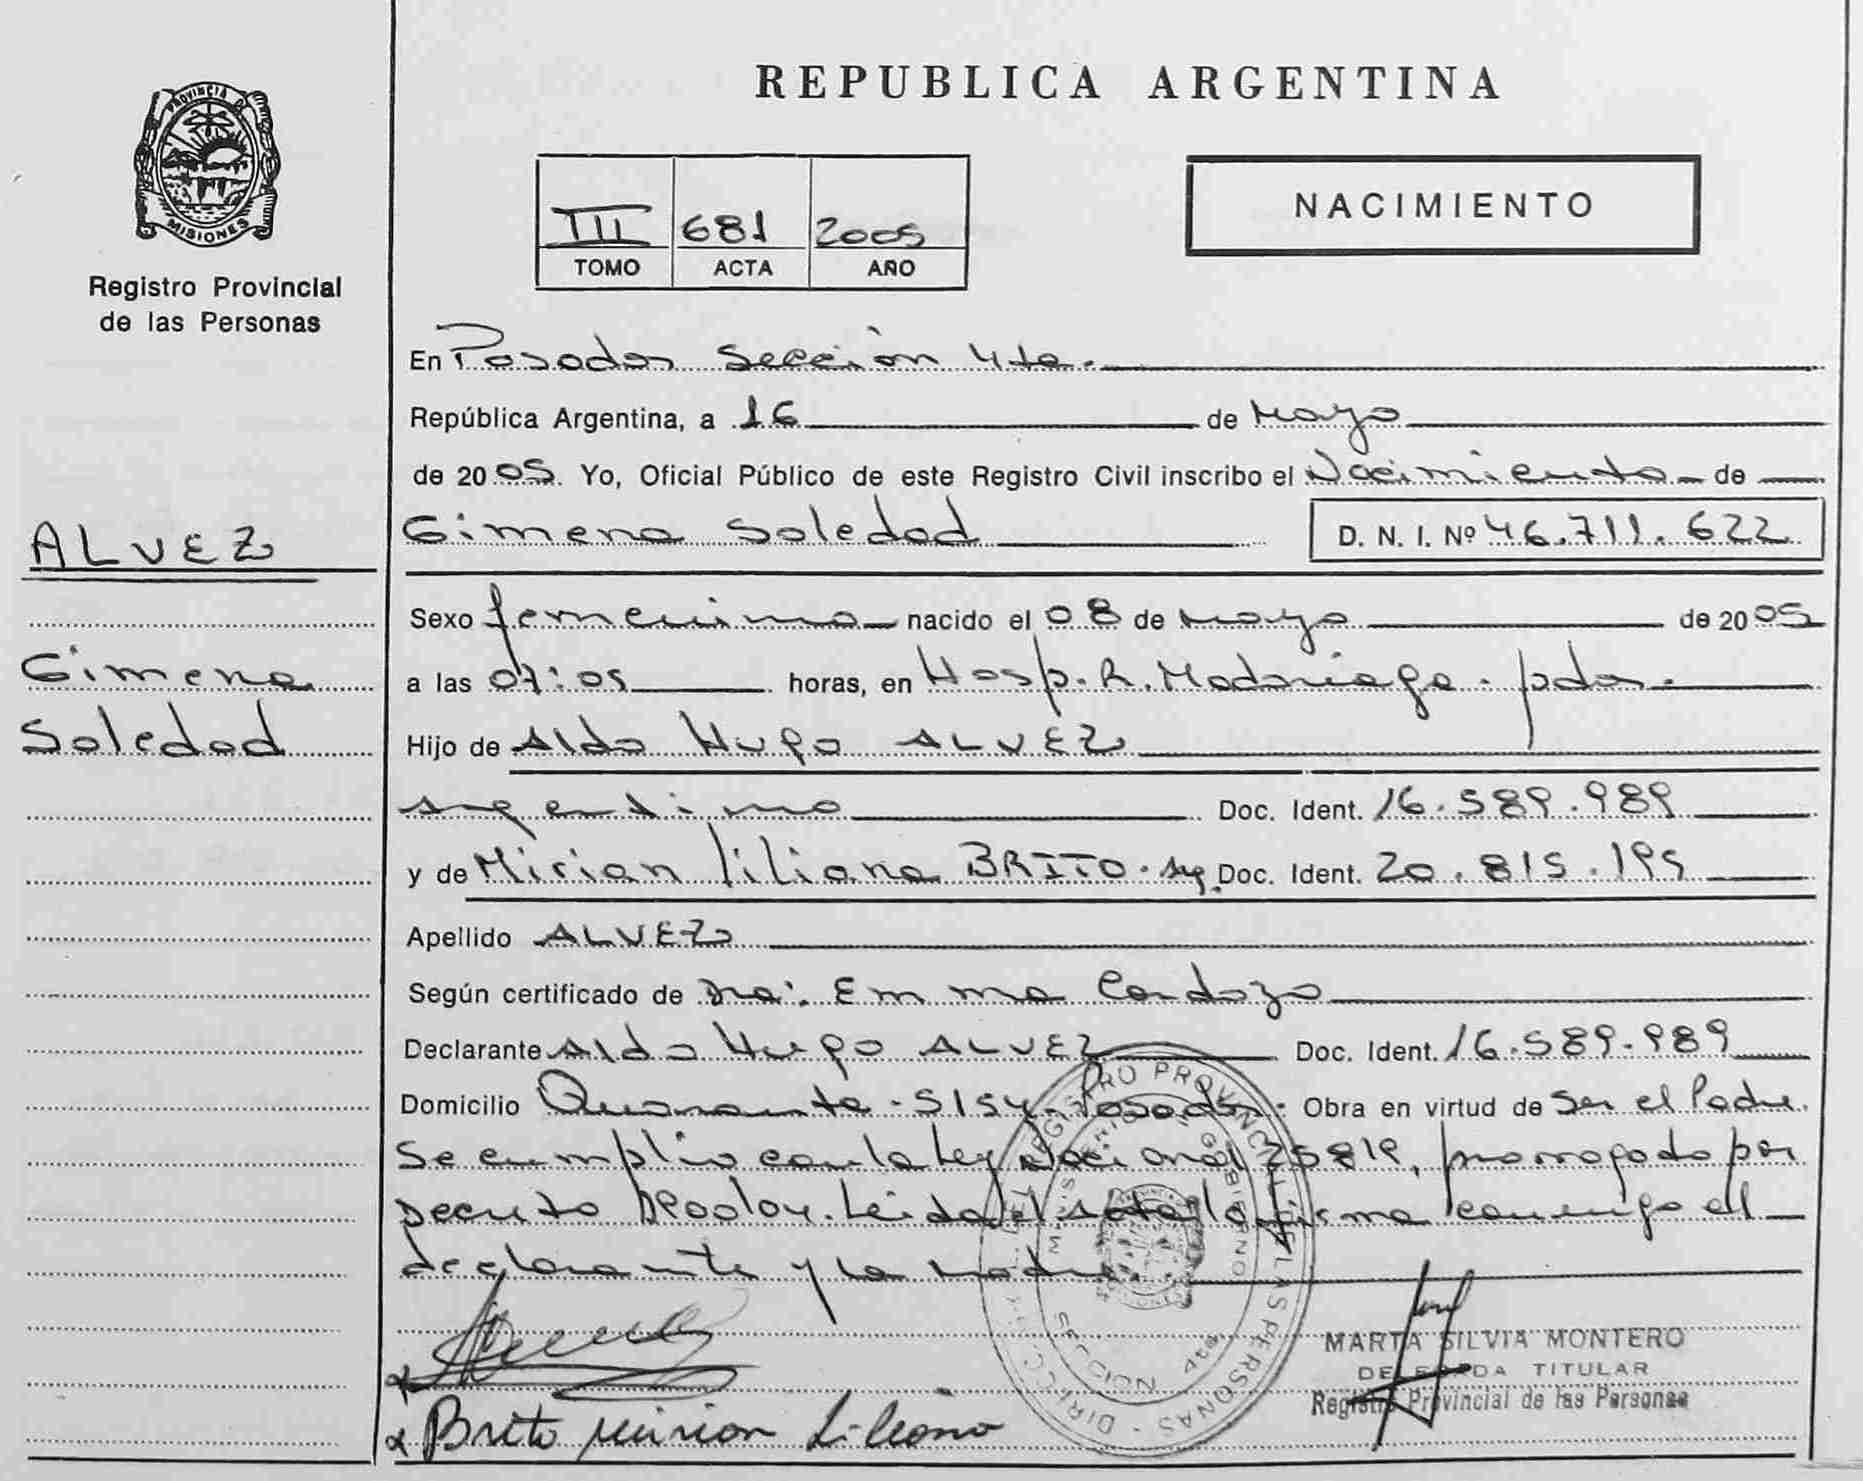 REPUBLICA ARGENTINA
PROVINCIA DE
MISIONES
Registro Provincial
de las Personas
III 681 2005
TOMO ACTA AÑO
NACIMIENTO
En Posadas Sección 4ta.
República Argentina, a 16 de Mayo
de 2005. Yo, Oficial Público de este Registro Civil inscribo el Nacimiento de
ALVEZ
Gimena Soledad D. N. I. Nº 46.711.622
Sexo femenino nacido el 08 de Mayo de 2005
Gimena
Soledad
a las 07:05 horas, en Hosp. R. Madariaga. pdas.
Hijo de Aldo Hugo ALVEZ
argentino Doc. Ident. 16.589.989
y de Mirian liliana BRITO. arg. Doc. Ident. 20.815.195
Apellido ALVEZ
Según certificado de Dra. Emma Cardozo
Declarante Aldo Hugo ALVEZ Doc. Ident. 16.589.989
Domicilio Quaranta. 5154. Posadas. Obra en virtud de Ser el Padre.
Se cumplio con la ley Nacional 25819, prorrogado por
Decreto Leida el acta la firma conmigo el
declarante y la madre.
REGISTRO PROVINCIAL DE LAS PERSONAS
MINISTERIO DE GOBIERNO
SECCION 4ta
MARTA SILVIA MONTERO
DELEGADA TITULAR
Registro Provincial de las Personas
Brito mirian Liliana